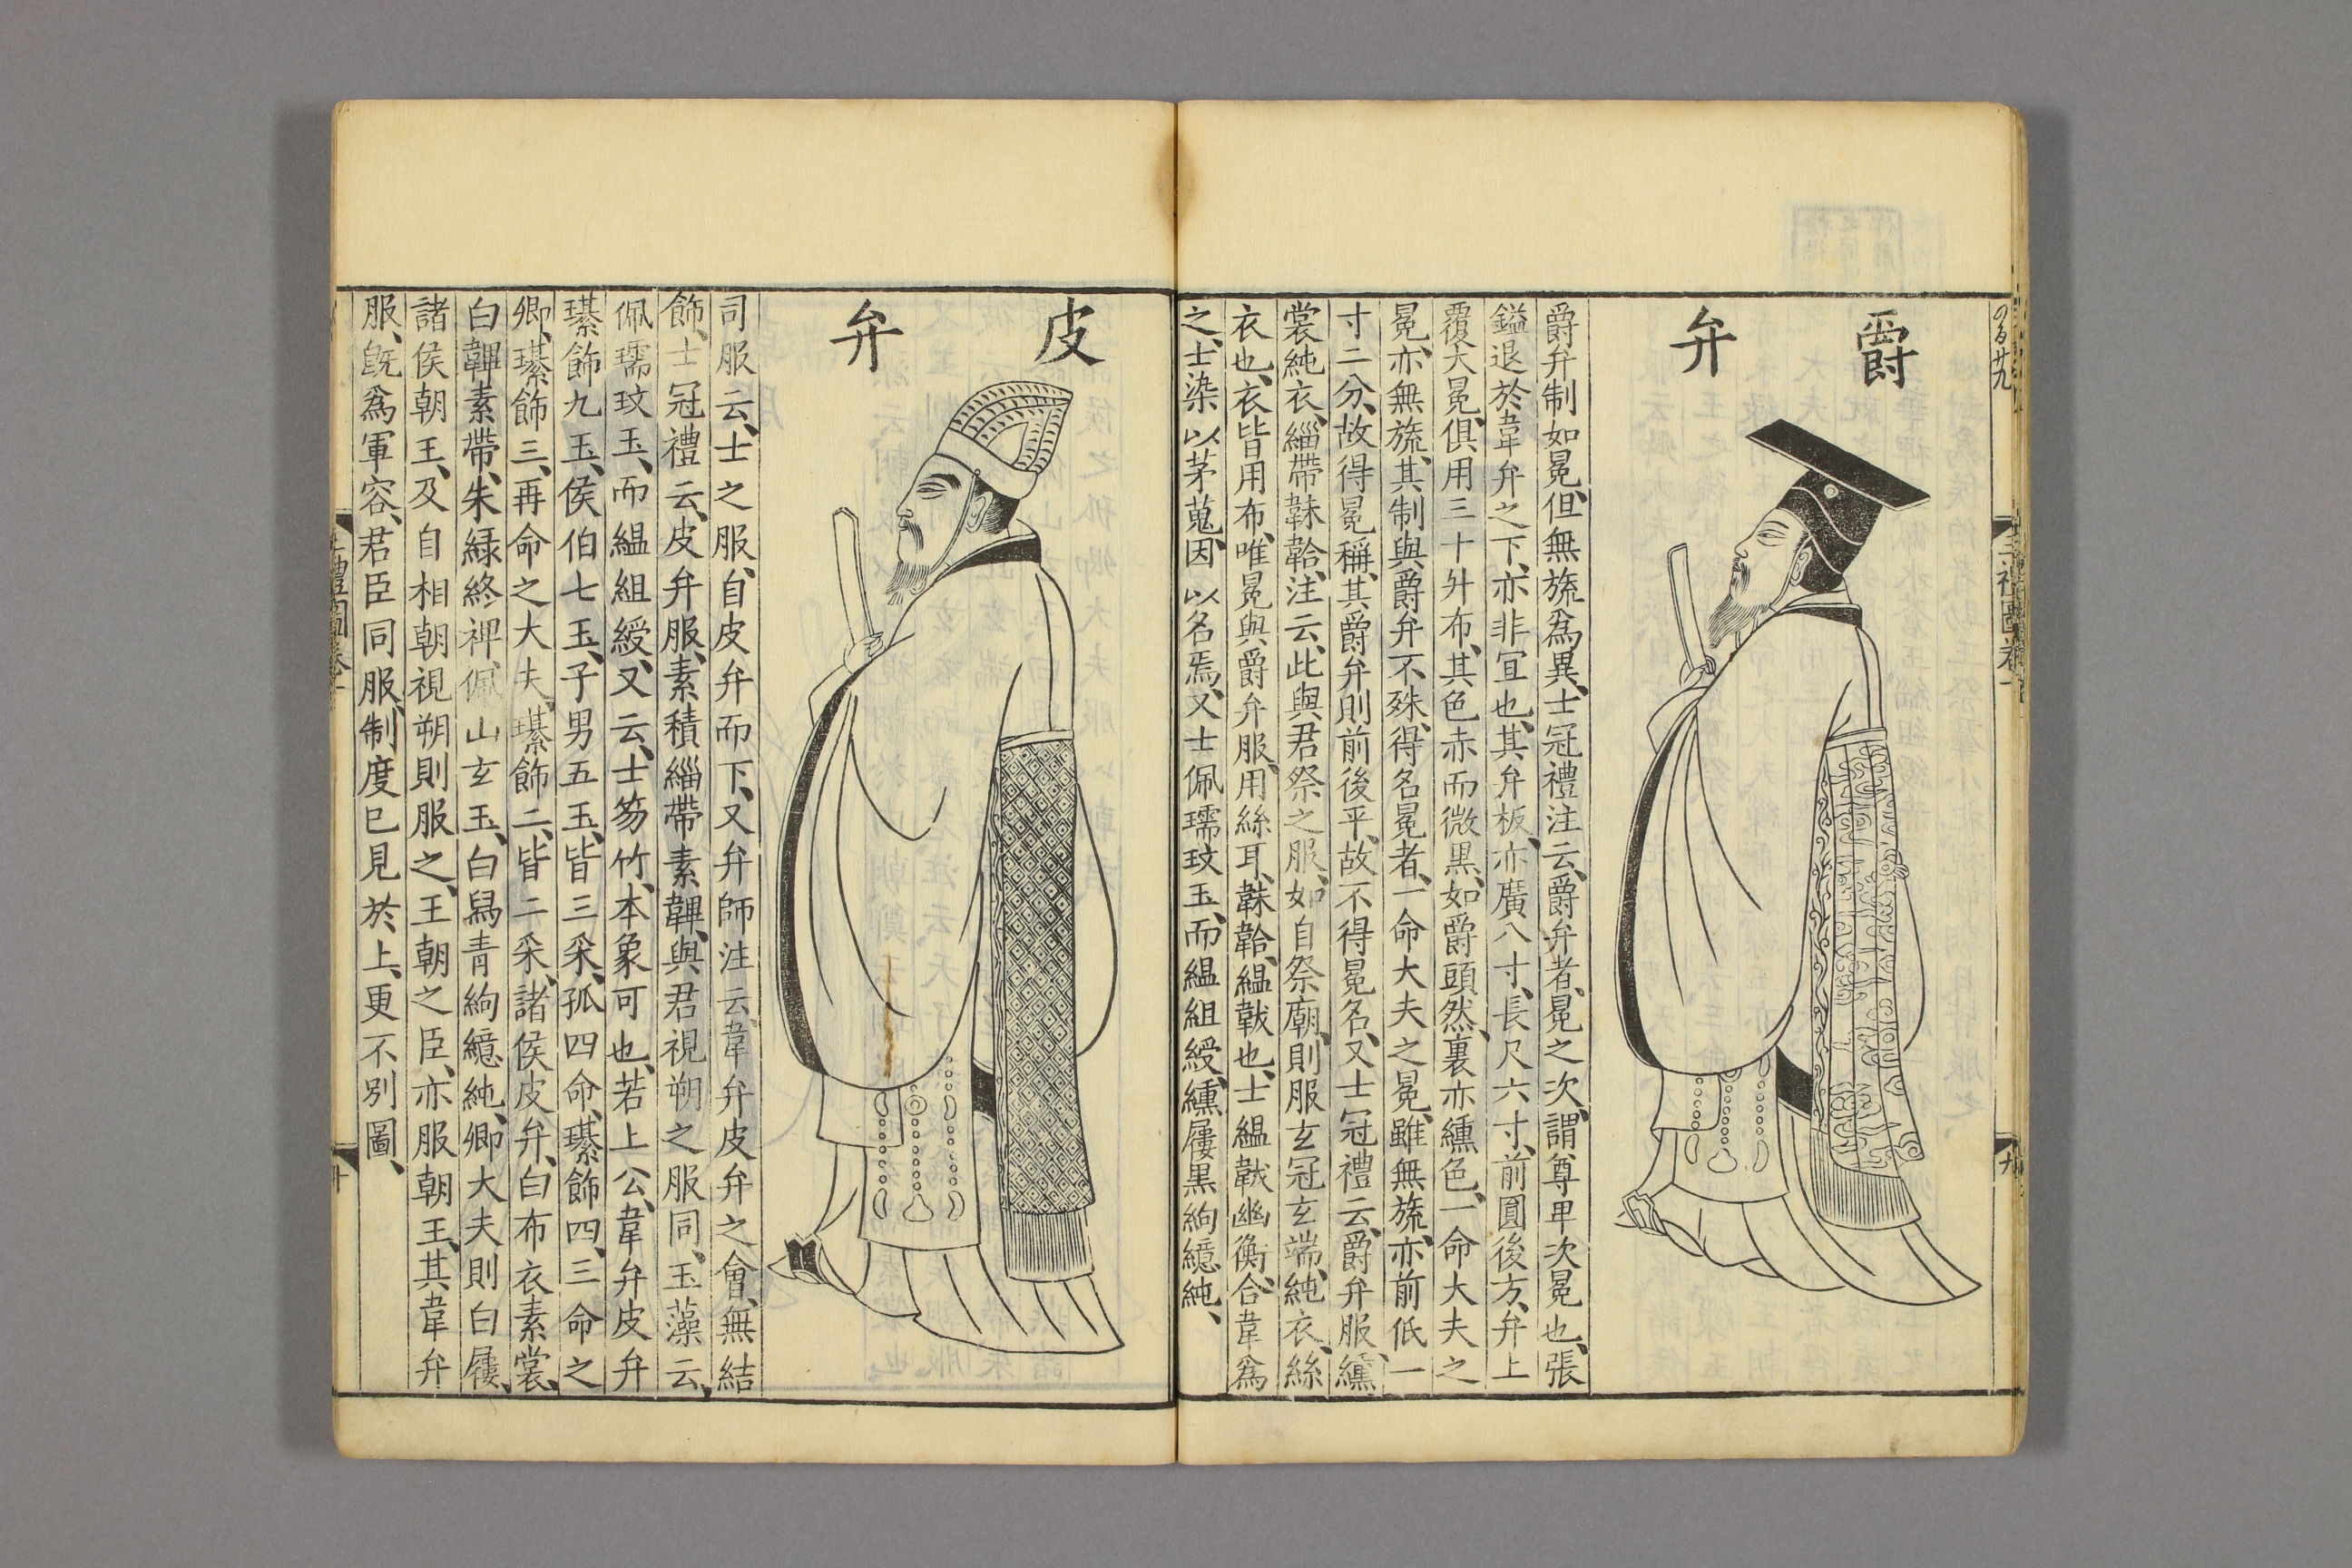 爵弁
爵弁制如冕、但無旒爲異、士冠禮注云、爵弁者、冕之次、謂尊卑次冕也、張
鎰退於韋弁之下、亦非宜也、其弁板、亦廣八寸、長尺六寸、前圓後方、弁上
覆大冕、俱用三十升布、其色赤而微黑、如爵頭然、裏亦纁色、一命大夫之
冕、亦無旒、其制與爵弁不殊、得名冕者、一命大夫之冕、雖無旒、亦前低一
寸二分、故得冕稱、其爵弁則前後平、故不得冕名、又士冠禮云、爵弁服、纁
裳純衣、緇帶韎韐、注云、此與君祭之服、如自祭廟、則服玄冠玄端、純衣、絲
衣也、衣皆用布、唯冕與爵弁服、用絲耳、韎韐、縕韍也、士縕韍幽衡、合韋爲
之、士染以茅蒐、因以名焉、又士佩瓀玟玉、而縕組綬、纁屨黑絇繶純、
三禮圖卷一
九
皮弁
司服云、士之服、自皮弁而下、又弁師注云、韋弁皮弁之會、無結
飾、士冠禮云、皮弁服、素積緇帶素韠、與君視朔之服同、玉藻云、
佩瓀玟玉、而縕組綬、又云、士笏竹、本象可也、若上公、韋弁皮弁
璂飾九玉、侯伯七玉、子男五玉、皆三采、孤四命、璂飾四、三命之
卿、璂飾三、再命之大夫、璂飾二、皆二采、諸侯皮弁、白布衣素裳、
白韠素帶、朱綠終裨、佩山玄玉、白舄青絇繶純、卿大夫則白屨、
諸侯朝王、及自相朝視朔則服之、王朝之臣、亦服朝王、其韋弁
服、旣爲軍容、君臣同服、制度已見於上、更不別圖、
三禮圖卷一
十